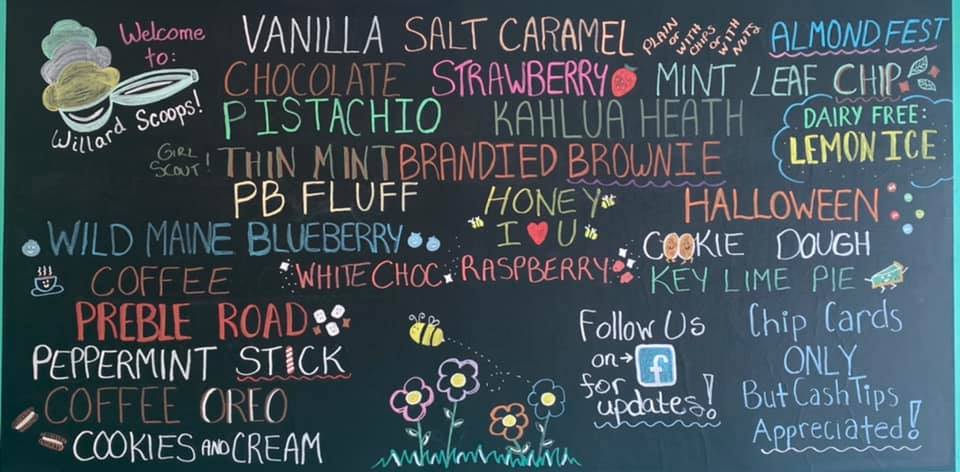 Welcome
to:
Willard Scoops!
VANILLA SALT CARAMEL
PLAIN
OR WITH
CHIPS
OR WITH
NUTS
ALMOND FEST
CHOCOLATE STRAWBERRY MINT LEAF CHIP
PISTACHIO KAHLUA HEATH
DAIRY FREE:
LEMON ICE
GIRL
SCOUT! THIN MINT BRANDIED BROWNIE
PB FLUFF
HONEY
I U
HALLOWEEN
WILD MAINE BLUEBERRY
COOKIE DOUGH
COFFEE WHITE CHOC RASPBERRY KEY LIME PIE
PREBLE ROAD
PEPPERMINT STICK
COFFEE OREO
COOKIES AND CREAM
Follow Us
on→ f
for
updates!
Chip Cards
ONLY
But Cash Tips
Appreciated!